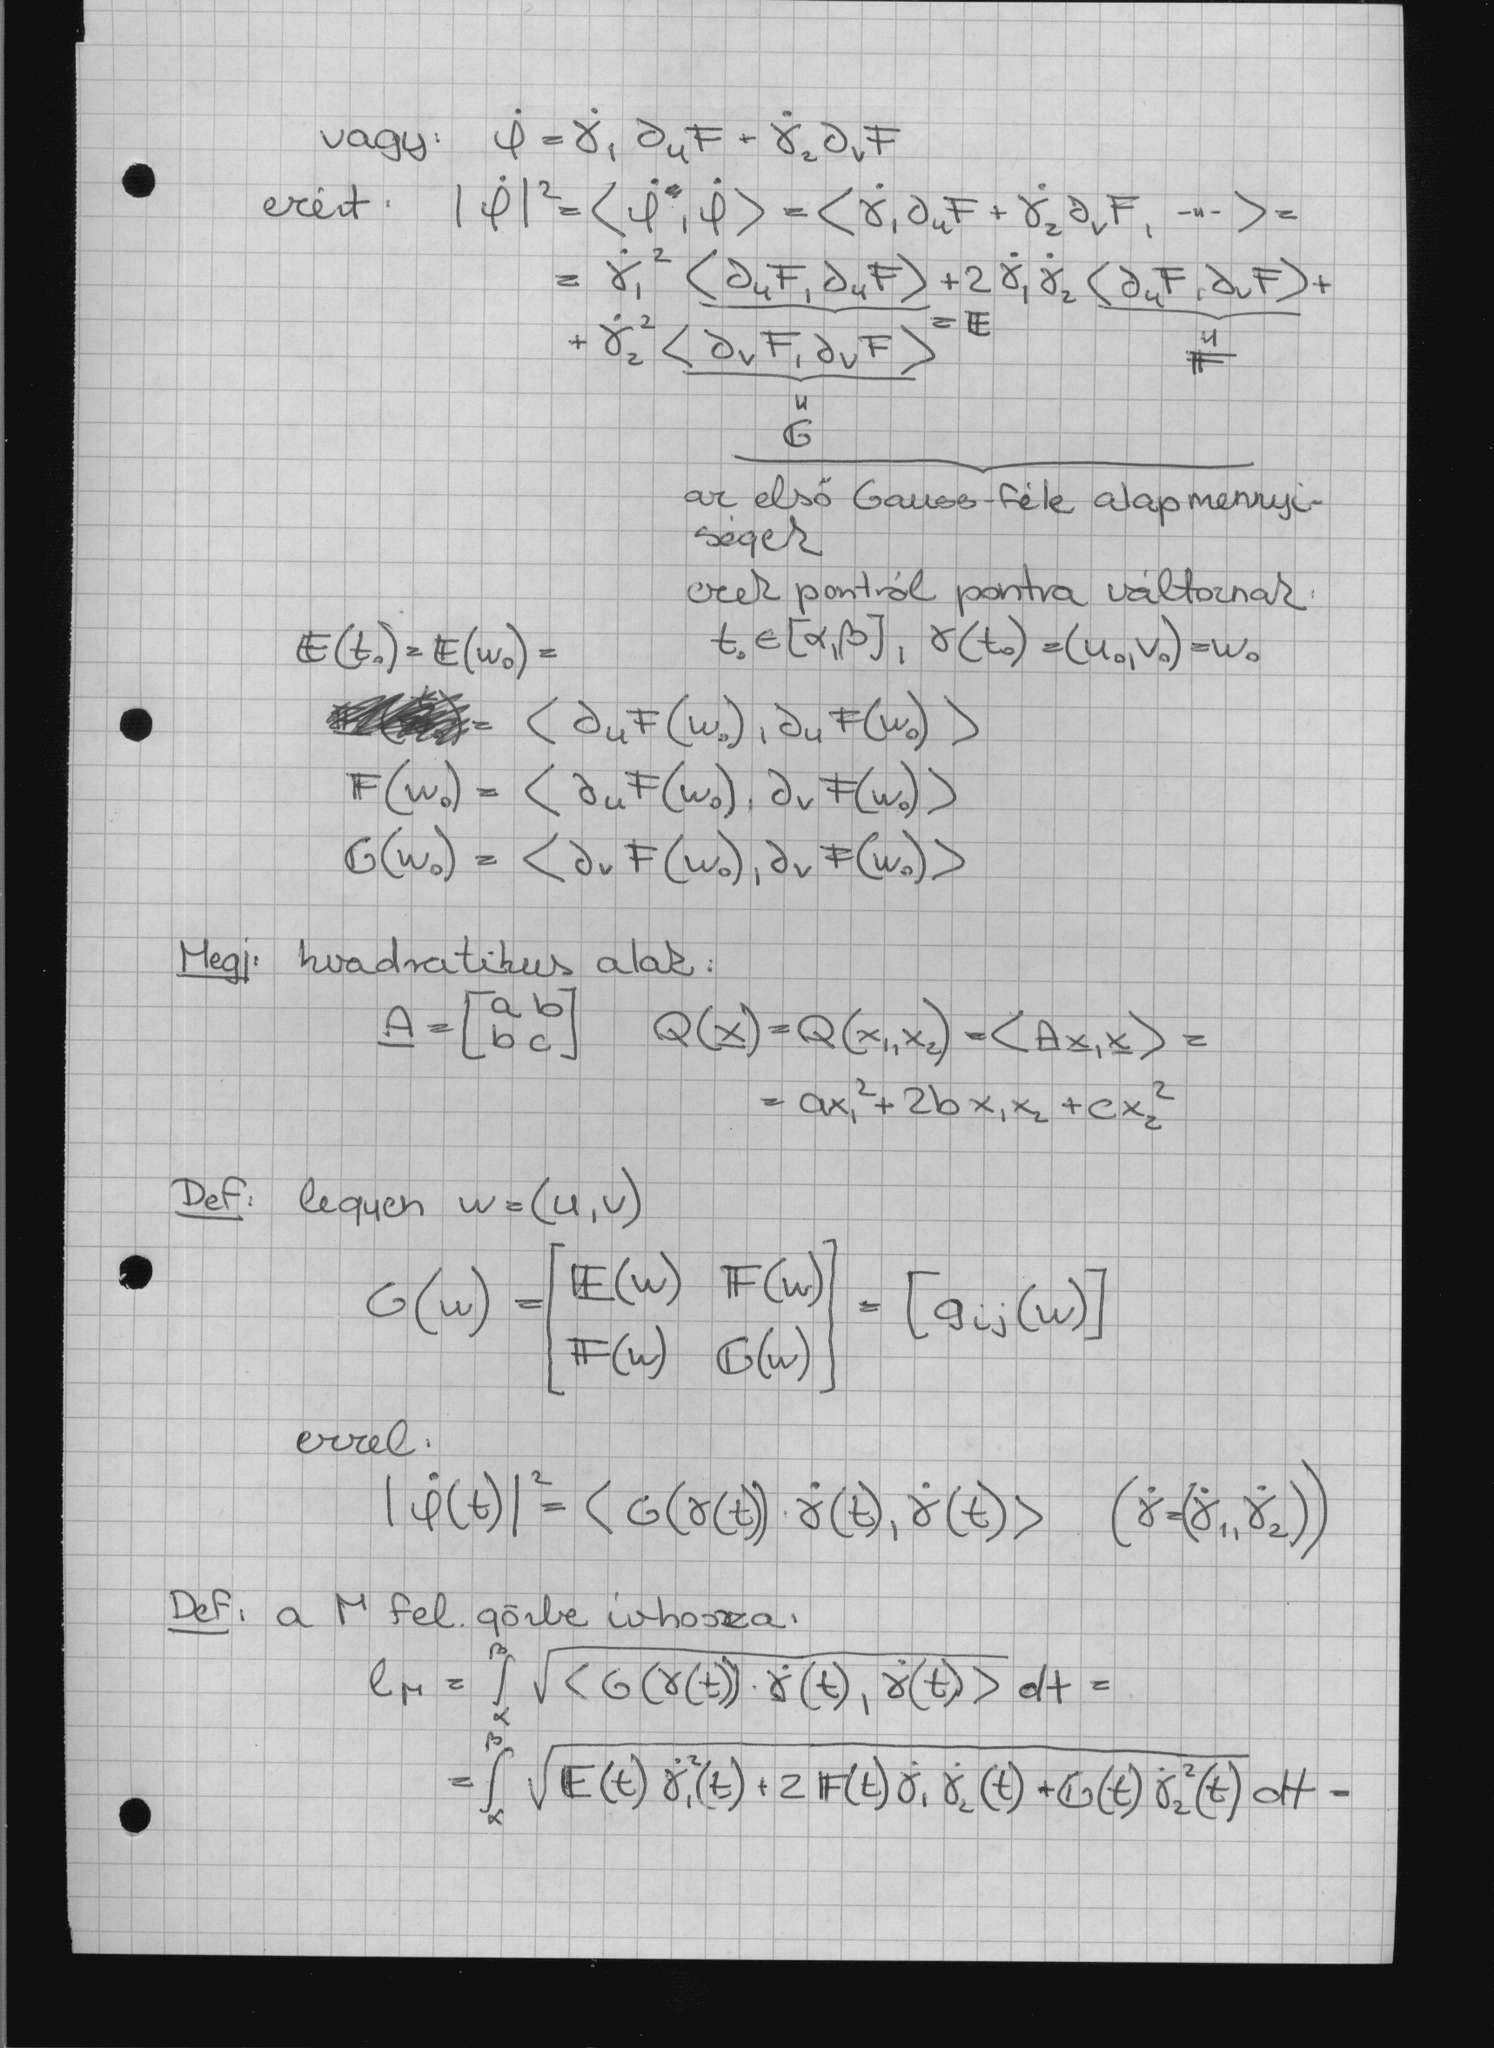 vagy: φ̇ = γ̇₁ ∂ᵤF + γ̇₂ ∂ᵥF
ezért: |φ̇|² = ⟨φ̇, φ̇⟩ = ⟨γ̇₁∂ᵤF + γ̇₂∂ᵥF, -"-⟩ =
= γ̇₁² ⟨∂ᵤF, ∂ᵤF⟩ + 2γ̇₁γ̇₂ ⟨∂ᵤF, ∂ᵥF⟩ +
= 𝔼
+ γ̇₂² ⟨∂ᵥF, ∂ᵥF⟩
" 𝔽
" 𝔾
az első Gauss-féle alapmennyi-
ségek
ezek pontról pontra változnak:
𝔼(t₀) = 𝔼(w₀) = t₀ ∈ [α, β], γ(t₀) = (u₀, v₀) = w₀
= ⟨∂ᵤF(w₀), ∂ᵤF(w₀)⟩
𝔽(w₀) = ⟨∂ᵤF(w₀), ∂ᵥF(w₀)⟩
𝔾(w₀) = ⟨∂ᵥF(w₀), ∂ᵥF(w₀)⟩
Megj: kvadratikus alak:
A = [a b; b c] Q(x) = Q(x₁, x₂) = ⟨Ax, x⟩ =
= ax₁² + 2bx₁x₂ + cx₂²
Def: legyen w = (u, v)
G(w) = [𝔼(w) 𝔽(w); 𝔽(w) 𝔾(w)] = [gᵢⱼ(w)]
ezzel:
|φ̇(t)|² = ⟨G(γ(t)) · γ̇(t), γ̇(t)⟩ (γ̇ = (γ̇₁, γ̇₂))
Def: a Γ fel. görbe ívhossza:
l_Γ = ∫_α^β √⟨G(γ(t)) · γ̇(t), γ̇(t)⟩ dt =
= ∫_α^β √(𝔼(t) γ̇₁²(t) + 2 𝔽(t) γ̇₁ γ̇₂(t) + 𝔾(t) γ̇₂²(t)) dt =